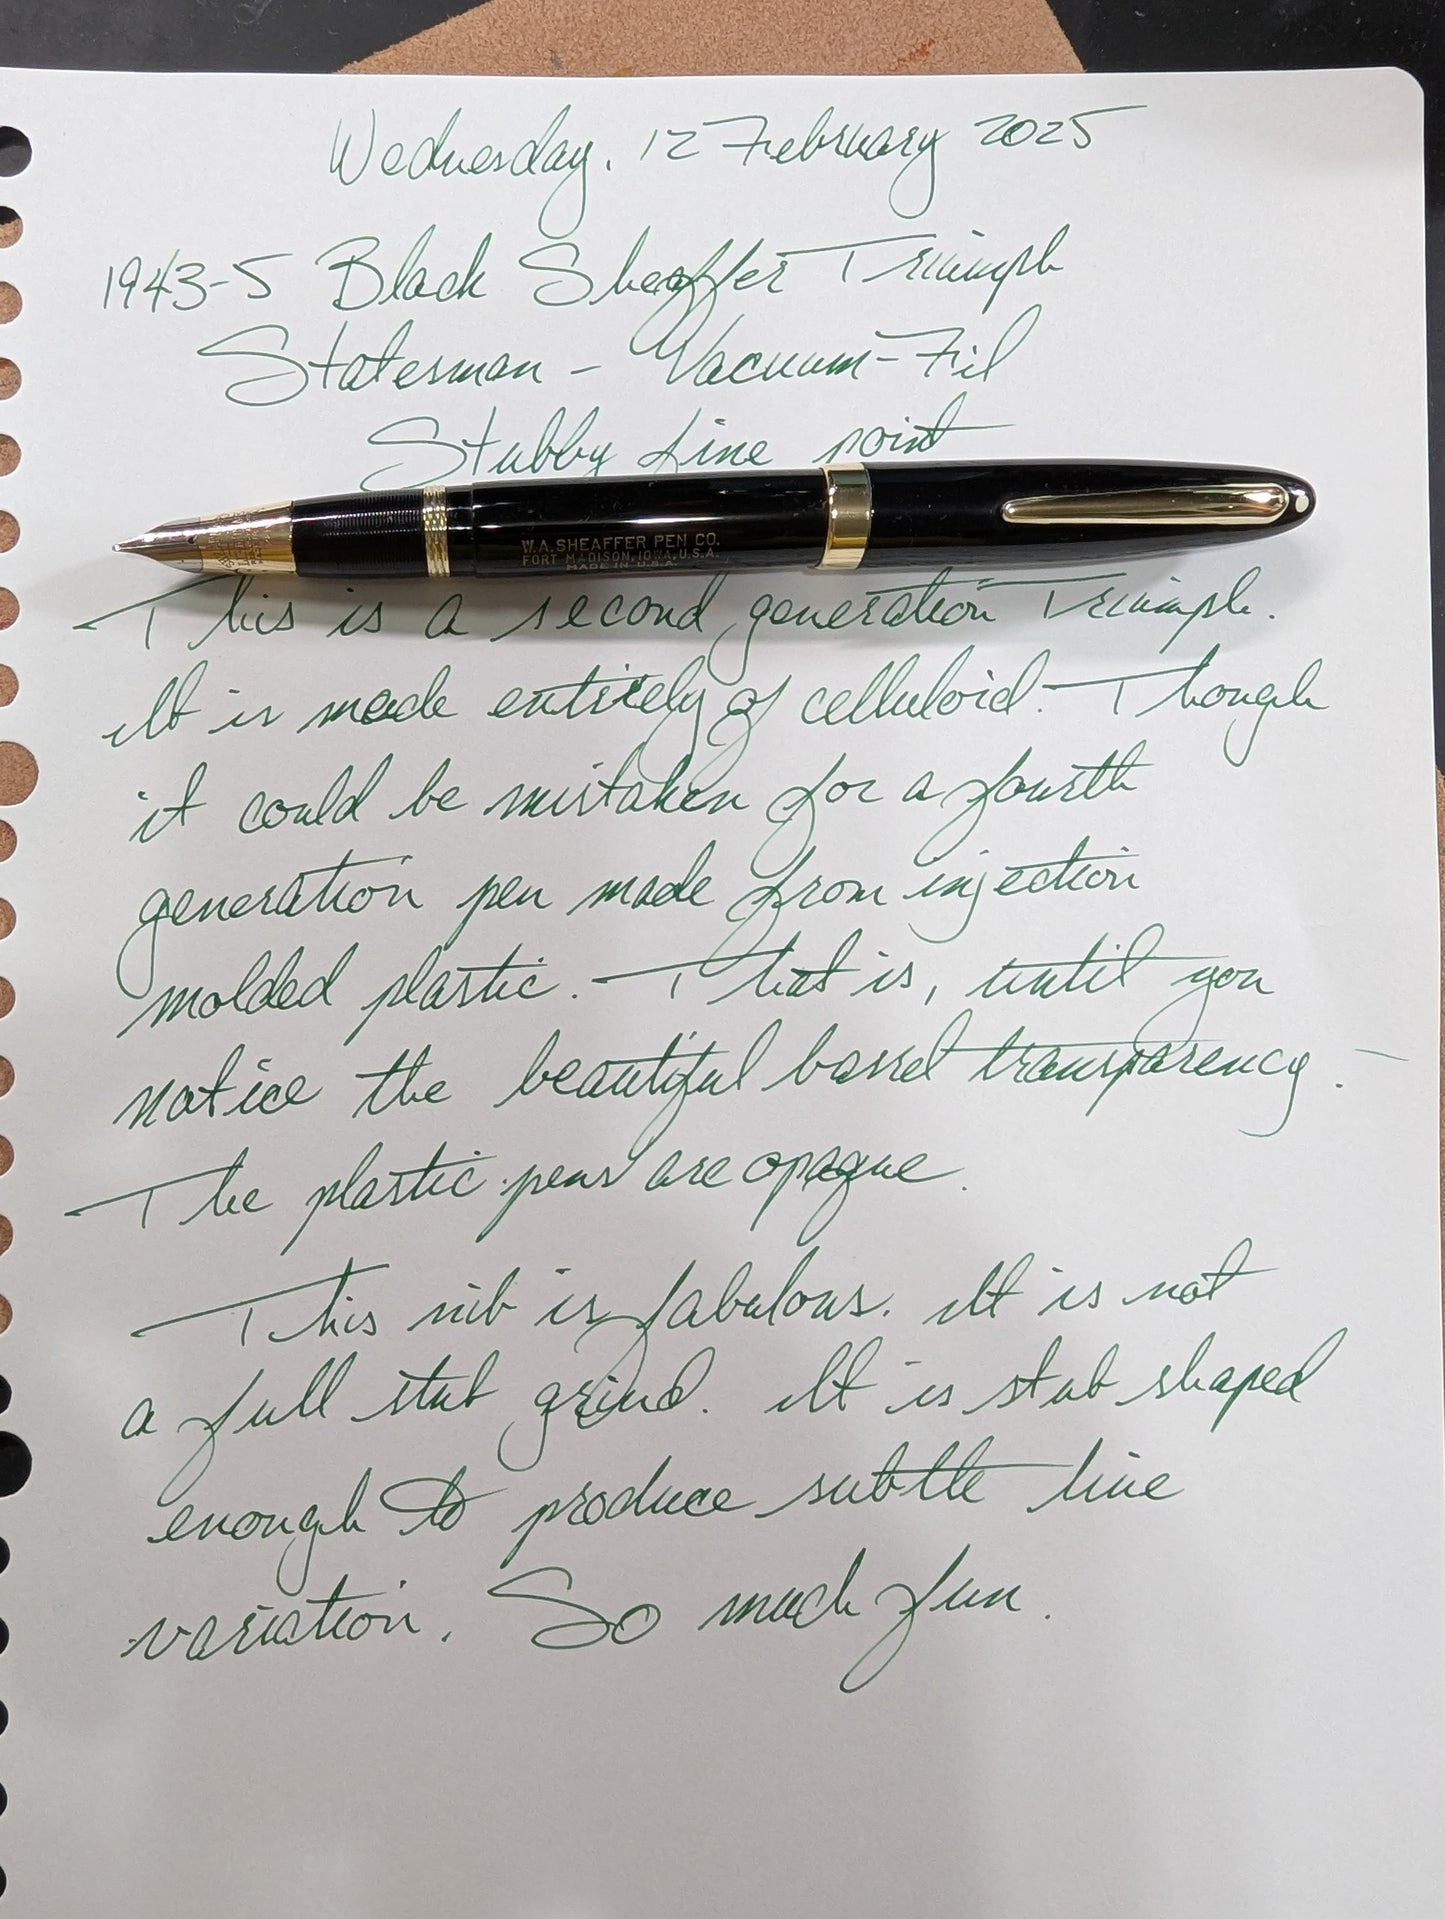 Wednesday. 12 February 2025
1943-5 Black Sheaffer Triumph
Statesman - Vacuum-Fil
Stubby fine point
W.A. SHEAFFER PEN CO.
FORT MADISON, IOWA, U.S.A.
MADE IN U.S.A.
This is a second generation Triumph.
It is made entirely of celluloid. Though
it could be mistaken for a fourth
generation pen made from injection
molded plastic. That is, until you
notice the beautiful barrel transparency.
The plastic pens are opaque.
This nib is fabulous. It is not
a full stub grind. It is stub shaped
enough to produce subtle line
variation. So much fun.